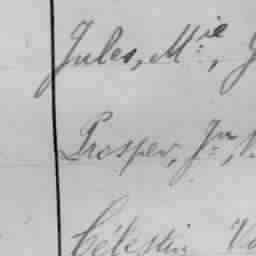 Jules, M.ie,
Prosper, J.n,
Célestin